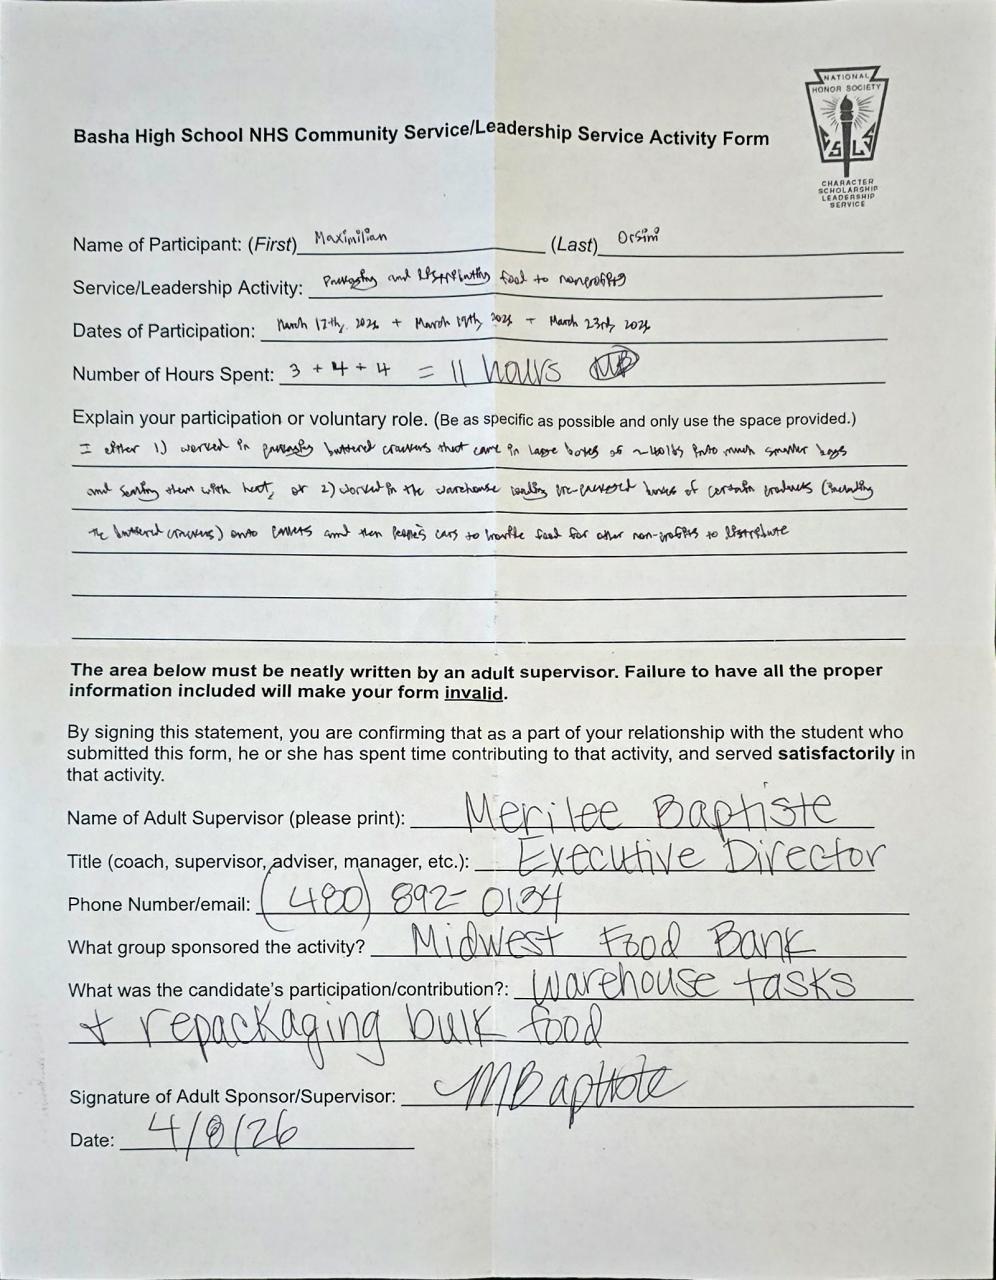 NATIONAL
HONOR SOCIETY
CHARACTER
SCHOLARSHIP
LEADERSHIP
SERVICE
Basha High School NHS Community Service/Leadership Service Activity Form
Name of Participant: (First) Maximilian (Last) Orsini
Service/Leadership Activity: Packaging and distributing food to nonprofits
Dates of Participation: March 12th, + March 19th + March 23rd,
Number of Hours Spent: 3 + 4 + 4 = 11 hours MB
Explain your participation or voluntary role. (Be as specific as possible and only use the space provided.)
I either 1) worked in packaging buttered crackers that came in large boxes of into much smaller bags
and sealing them with heat, or 2) worked in the warehouse loading boxes of certain products (including
the buttered crackers) onto and then people's cars to provide food for other non-profits to distribute
The area below must be neatly written by an adult supervisor. Failure to have all the proper
information included will make your form invalid.
By signing this statement, you are confirming that as a part of your relationship with the student who
submitted this form, he or she has spent time contributing to that activity, and served satisfactorily in
that activity.
Name of Adult Supervisor (please print): Merilee Baptiste
Title (coach, supervisor, adviser, manager, etc.): Executive Director
Phone Number/email: (480) 892-0134
What group sponsored the activity? Midwest Food Bank
What was the candidate's participation/contribution?: warehouse tasks
+ repackaging bulk food
Signature of Adult Sponsor/Supervisor: MBaptiste
Date: 4/8/26